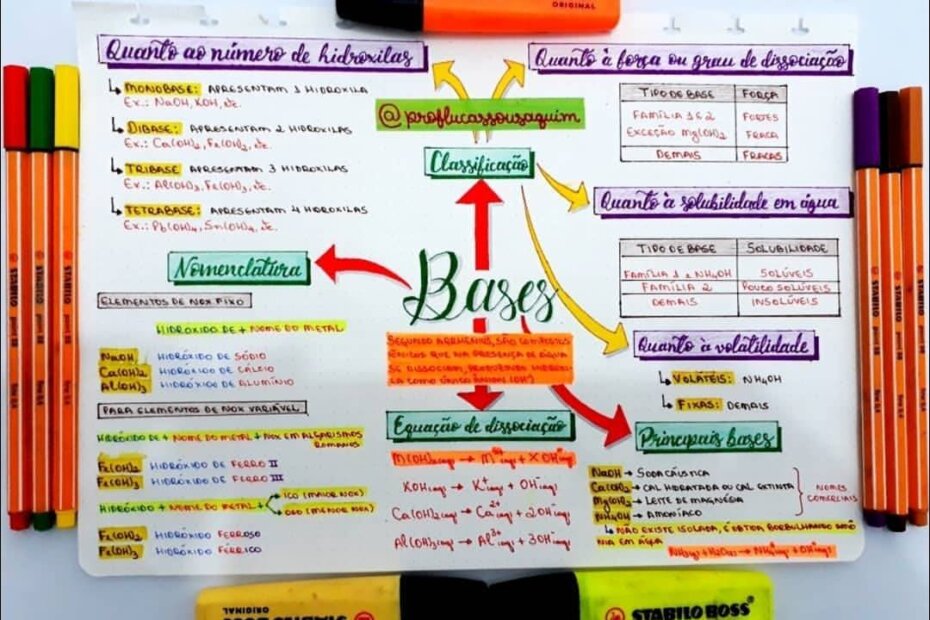 ORIGINAL
Quanto ao número de hidroxilas
MONOBASE: APRESENTAM 1 HIDROXILA
Ex.: NaOH, KOH, etc.
DIBASE: APRESENTAM 2 HIDROXILAS
Ex.: Ca(OH)₂, Fe(OH)₂, etc.
TRIBASE: APRESENTAM 3 HIDROXILAS
Ex.: Al(OH)₃, Fe(OH)₃, etc.
TETRABASE: APRESENTAM 4 HIDROXILAS
Ex.: Pb(OH)₄, Sn(OH)₄, etc.
@proflucassousaquim
Classificação
Quanto à força ou grau de dissociação
TIPO DE BASE FORÇA
FAMÍLIA 1 E 2 FORTES
EXCEÇÃO Mg(OH)₂ FRACA
DEMAIS FRACAS
Quanto à solubilidade em água
TIPO DE BASE SOLUBILIDADE
FAMÍLIA 1 e NH₄OH SOLÚVEIS
FAMÍLIA 2 POUCO SOLÚVEIS
DEMAIS INSOLÚVEIS
Quanto à volatilidade
VOLÁTEIS: NH₄OH
FIXAS: DEMAIS
Bases
SEGUNDO ARRHENIUS, SÃO COMPOSTOS
IÔNICOS QUE NA PRESENÇA DE ÁGUA
SE DISSOCIAM, PRODUZINDO HIDROXI-
LA COMO ÚNICO ÂNION (OH⁻)
Nomenclatura
ELEMENTOS DE NOX FIXO
HIDRÓXIDO DE + NOME DO METAL
NaOH HIDRÓXIDO DE SÓDIO
Ca(OH)₂ HIDRÓXIDO DE CÁLCIO
Al(OH)₃ HIDRÓXIDO DE ALUMÍNIO
PARA ELEMENTOS DE NOX VARIÁVEL
HIDRÓXIDO DE + NOME DO METAL + NOX EM ALGARISMOS
ROMANOS
Fe(OH)₂ HIDRÓXIDO DE FERRO II
Fe(OH)₃ HIDRÓXIDO DE FERRO III
HIDRÓXIDO + NOME DO METAL +
ICO (MAIOR NOX)
OSO (MENOR NOX)
Fe(OH)₂ HIDRÓXIDO FERROSO
Fe(OH)₃ HIDRÓXIDO FÉRRICO
Equação de dissociação
KOH(aq) → K⁺(aq) + OH⁻(aq)
Ca(OH)₂(aq) → Ca²⁺(aq) + 2OH⁻(aq)
Al(OH)₃(aq) → Al³⁺(aq) + 3OH⁻(aq)
Principais bases
NaOH → SODA CÁUSTICA
Ca(OH)₂ → CAL HIDRATADA OU CAL EXTINTA
Mg(OH)₂ → LEITE DE MAGNÉSIA
NH₄OH → AMONÍACO
NOMES
COMERCIAIS
NÃO EXISTE ISOLADA, É OBTIDA BORBULHANDO AMÔ
NIA EM ÁGUA
STABILO
STABILO
STABILO
STABILO
STABILO
STABILO
ORIGINAL
STABILO BOSS